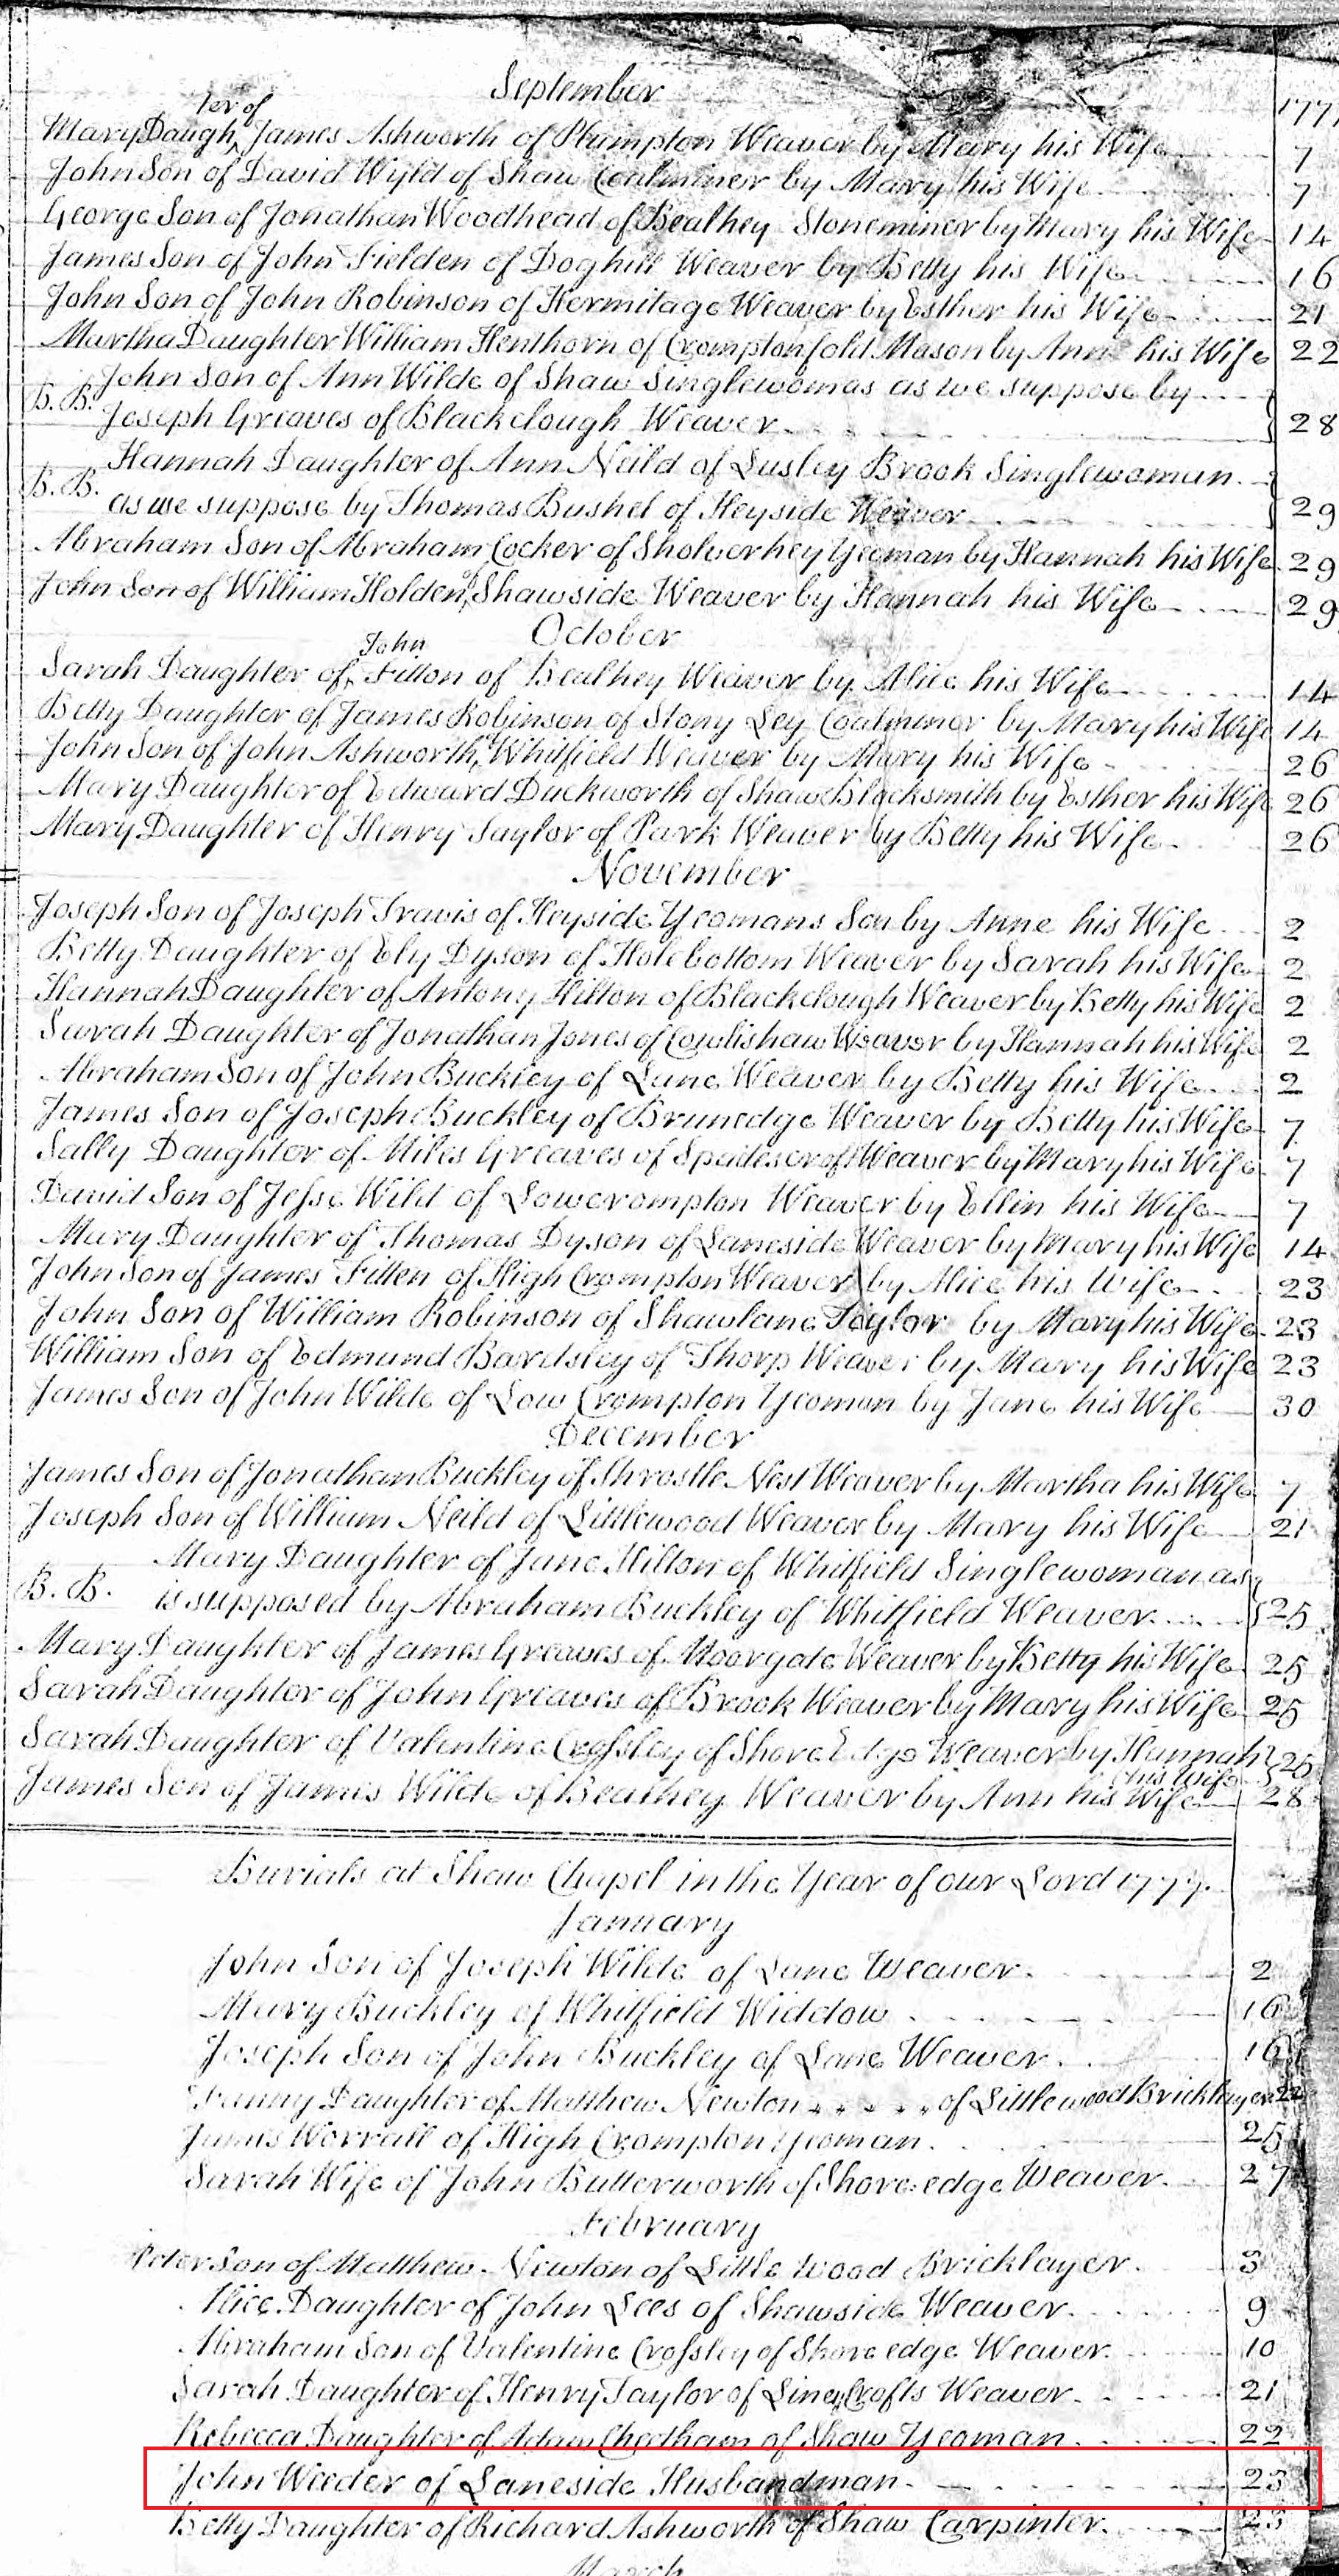 September
177
ter of
Mary Daugh^ James Ashworth of Plumpton Weaver by Mary his Wife 7
John Son of David Wyld of Shaw Coalminer by Mary his Wife 7
George Son of Jonathan Woodhead of Bealhey Stoneminer by Mary his Wife 14
James Son of John Fielden of Doghill Weaver by Betty his Wife 16
John Son of John Robinson of Hermitage Weaver by Esther his Wife 21
Martha Daughter William Henthorn of Cromptonfold Mason by Ann his Wife 22
John Son of Ann Wilde of Shaw Singlewoman as we suppose by
B. B. Joseph Greaves of Blackclough Weaver 28
Hannah Daughter of Ann Neild of Lusley Brook Singlewoman
B. B. as we suppose by Thomas Bushel of Heyside Weaver 29
Abraham Son of Abraham Cocker of Sholverhey Yeoman by Hannah his Wife 29
John Son of William Holden of Shawside Weaver by Hannah his Wife 29
October
John
Sarah Daughter of^ Fitton of Bealhey Weaver by Alice his Wife 14
Betty Daughter of James Robinson of Stony Ley Coalminer by Mary his Wife 14
John Son of John Ashworth of Whitfield Weaver by Mary his Wife 26
Mary Daughter of Edward Duckworth of Shaw Blacksmith by Esther his Wife 26
Mary Daughter of Henry Taylor of Park Weaver by Betty his Wife 26
November
Joseph Son of Joseph Travis of Heyside Yeomans Son by Anne his Wife 2
Betty Daughter of Ely Dyson of Holebottom Weaver by Sarah his Wife 2
Hannah Daughter of Antony Hilton of Blackclough Weaver by Betty his Wife 2
Sarah Daughter of Jonathan Jones of Cowlishaw Weaver by Hannah his Wife 2
Abraham Son of John Buckley of Lane Weaver by Betty his Wife 2
James Son of Joseph Buckley of Brunedge Weaver by Betty his Wife 7
Sally Daughter of Miles Greaves of Spadescroft Weaver by Mary his Wife 7
David Son of Jesse Wild of Lowcrompton Weaver by Ellin his Wife 7
Mary Daughter of Thomas Dyson of Laneside Weaver by Mary his Wife 14
John Son of James Fitten of High Crompton Weaver by Alice his Wife 23
John Son of William Robinson of Shawlane Taylor by Mary his Wife 23
William Son of Edmund Bardsley of Thorp Weaver by Mary his Wife 23
James Son of John Wilde of Low Crompton Yeoman by Jane his Wife 30
December
James Son of Jonathan Buckley of Throstle Nest Weaver by Martha his Wife 7
Joseph Son of William Neild of Littlewood Weaver by Mary his Wife 21
Mary Daughter of Jane Hilton of Whitfield Singlewoman as
B. B. is supposed by Abraham Buckley of Whitfield Weaver 25
Mary Daughter of James Greaves of Moorgate Weaver by Betty his Wife 25
Sarah Daughter of John Greaves of Brook Weaver by Mary his Wife 25
Sarah Daughter of Valentine Crossley of Shore Edge Weaver by Hannah 25
his Wife
James Son of James Wilde of Bealhey Weaver by Ann his Wife 28
Burials at Shaw Chapel in the Year of our Lord 1777.
January
John Son of Joseph Wilde of Lane Weaver 2
Mary Buckley of Whitfield Widdow 16
Joseph Son of John Buckley of Lane Weaver 16
Fanny Daughter of Matthew Newton of Littlewood Bricklayer 22
James Worrall of High Crompton Yeoman 25
Sarah Wife of John Butterworth of Shore edge Weaver 27
February
Peter Son of Matthew Newton of Little wood Bricklayer 3
Alice Daughter of John Lees of Shawside Weaver 9
Abraham Son of Valentine Crossley of Shore edge Weaver 10
Sarah Daughter of Henry Taylor of Crofts Weaver 21
Rebecca Daughter of Adam Cheetham of Shaw Yeoman 22
John Weeder of Laneside Husbandman 23
Betty Daughter of Richard Ashworth of Shaw Carpinter 23
March